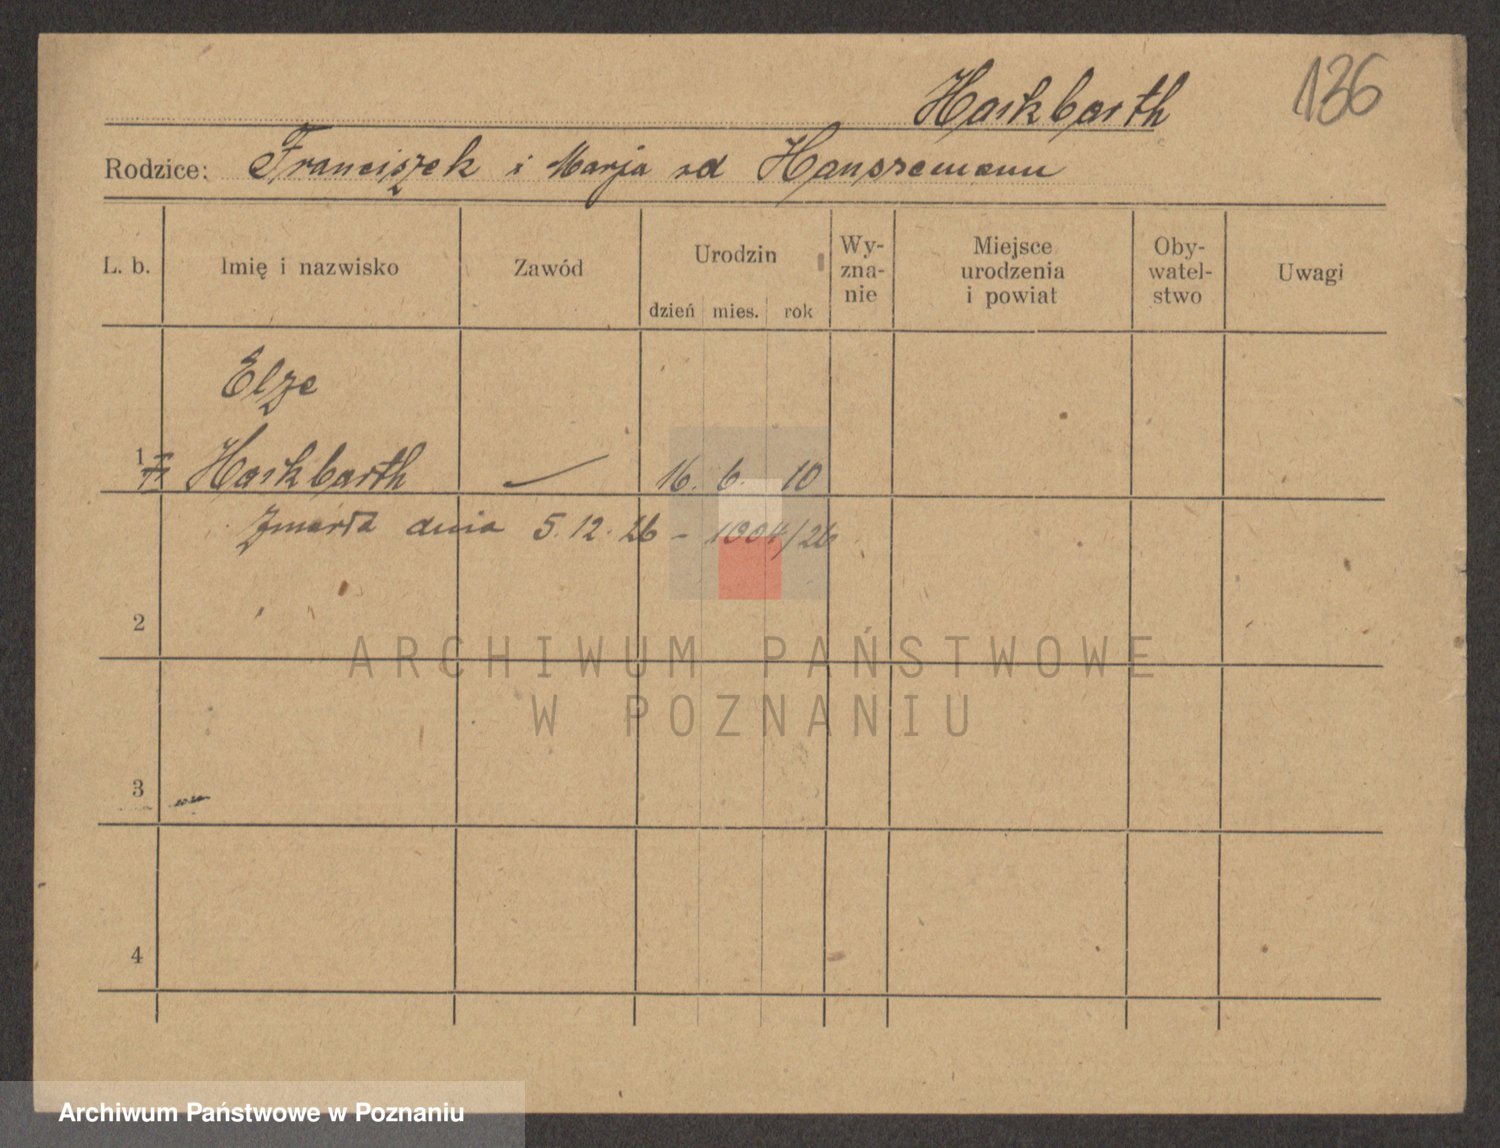 Harkbarth 136
Rodzice: Franciszek i Marja od Hanssemann
L. b. Imię i nazwisko Zawód Urodzin dzień mies. rok Wy-zna-nie Miejsce urodzenia i powiat Oby-watel-stwo Uwagi
Elze
1 Harkbarth — 16. 6. 10
Zmarła dnia 5. 12. 26 - 1004/26
2
3
4
ARCHIWUM PAŃSTWOWE
W POZNANIU
Archiwum Państwowe w Poznaniu